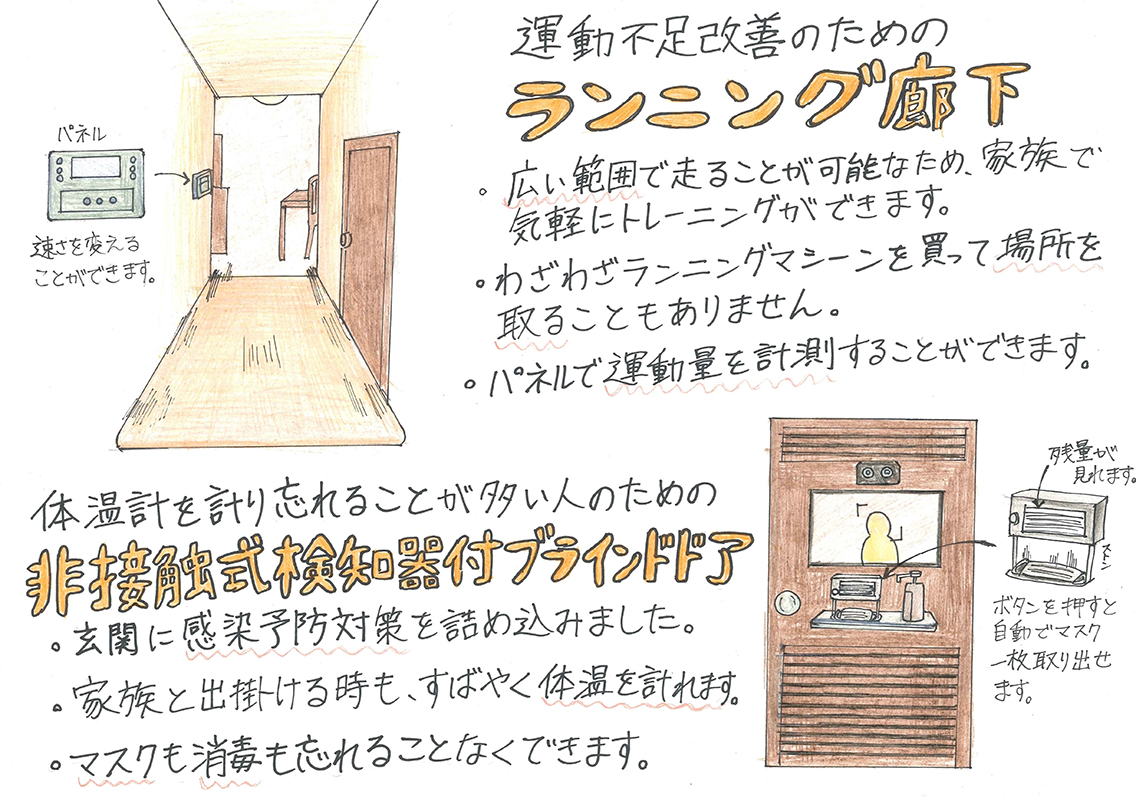 運動不足改善のための
ランニング廊下
パネル
速さを変える
ことができます。
。広い範囲で走ることが可能なため、家族で
気軽にトレーニングができます。
。わざわざランニングマシーンを買って場所を
取ることもありません。
。パネルで運動量を計測することができます。
体温計を計り忘れることが多い人のための
非接触式検知器付ブラインドドア
。玄関に感染予防対策を詰め込みました。
。家族と出掛ける時も、すばやく体温を計れます。
。マスクも消毒も忘れることなくできます。
残量が
見れます。
ストン
ボタンを押すと
自動でマスク
一枚取り出せ
ます。